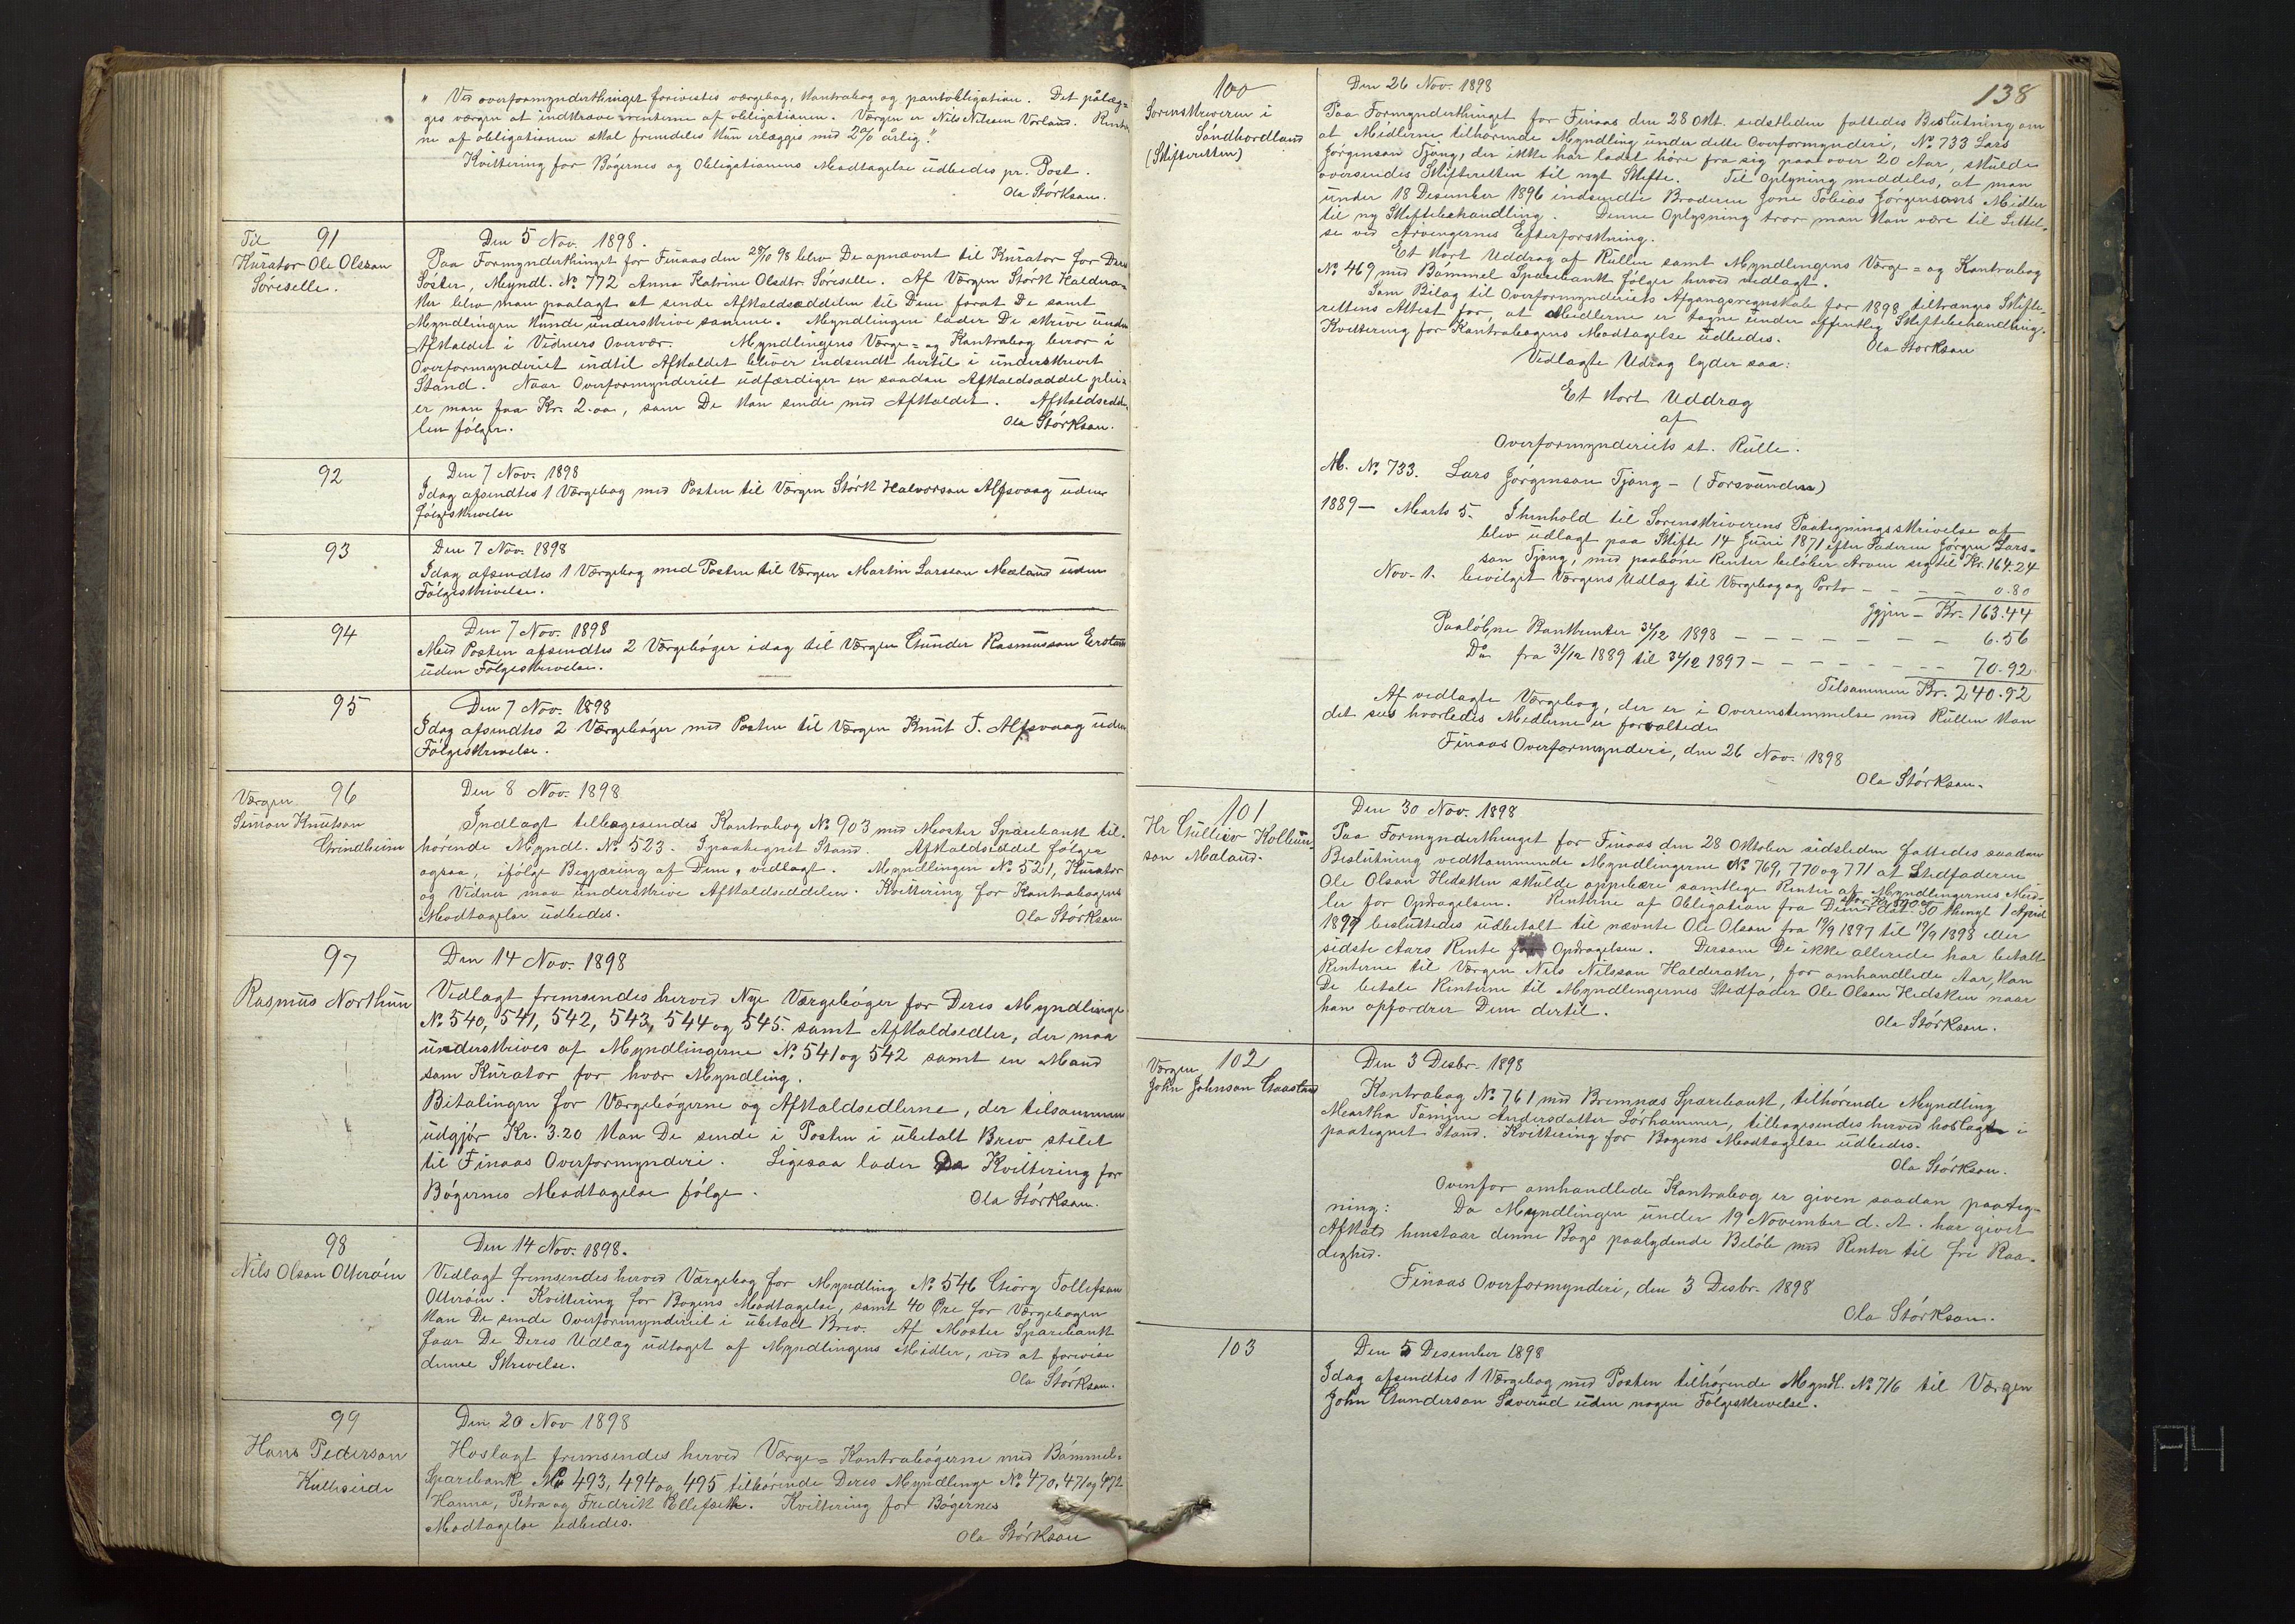 " Ved overformynderthinget forevistes værgebog, kontrabog og pantobligation. Det pålæg-
ges værgen at indkræve renterne af obligationen. Værgen er Nils Nilssen Vorland. Rente
ne af obligationen skal fremdeles kun erlægges med 2% årlig."
Kvittering for Bøgernes og Obligationens Modtagelse udbedes pr. Post.
Ola Størkson.
Til 91
Kurator Ole Olsson
Søreselle.
Den 5 Nov. 1898.
Paa Formynderthinget for Finaas den 28/10 98 blev De opnævnt til Kurator for Deres
Søster, Myndl. No 772 Anna Katrine Olsdtr. Søreselle. Af Værgen Størk Haldera-
ker blev man paalagt at sende Afkaldseddelen til Dem forat De samt
Myndlingen kunde underskrive samme. Myndlingen lader De skrive under
Afkaldet i Vidners Overvær. Myndlingens Værge= og Kontrabog beror i
Overformynderiet indtil Afkaldet bliver indsendt hertil i underskrevet
Stand. Naar Overformynderiet udfærdiger en saadan Afkaldseddel plei-
er man faa Kr. 2.00, som De kan sende med Afkaldet. Afkaldsedde-
len følger. Ola Størkson.
92
Den 7 Nov. 1898
Idag afsendtes 1 Værgebog med Posten til Værgen Størk Halvorson Alfsvaag uden
Følgeskrivelse
93
Den 7 Nov. 1898
Idag afsendtes 1 Værgebog med Posten til Værgen Martin Larsson Mæland uden
Følgeskrivelse.
94
Den 7 Nov. 1898
Med Posten afsendtes 2 Værgebøger idag til Værgen Gunder Rasmusson
uden Følgeskrivelse.
95
Den 7 Nov. 1898
Idag afsendtes 2 Værgebøger med Posten til Værgen Knut T. Alfsvaag uden
Følgeskrivelse.
Værgen 96
Simon Knutson
Grindheim
Den 8 Nov. 1898
Indlagt tilbagesendes Kontrabog No 903 med Moster Sparebank til-
hørende Myndl. No 523. I paategnet Stand. Afkaldseddel følger
ogsaa, ifølge Begjæring af Dem, vedlagt. Myndlingen No 521, Kurator
og Vidner maa underskrive Afkaldseddelen. Kvittering for Kontrabogens
Modtagelse udbedes. Ola Størkson
97
Rasmus Northun
Den 14 Nov. 1898
Vedlagt fremsendes herved Nye Værgebøger for Deres Myndlinge
No 540, 541, 542, 543, 544 og 545. samt Afkaldsedler, der maa
underskrives af Myndlingerne No 541 og 542 samt en Mand
som Kurator for hver Myndling.
Betalingen for Værgebøgerne og Afkaldsedlerne, der tilsammen
udgjør Kr. 3.20 kan De sende i Posten i ubetalt Brev stilet
til Finaas Overformynderi. Ligesaa lader De Kvittering for
Bøgernes Modtagelse følge. Ola Størkson.
98
Nils Olson Otterøen
Den 14 Nov. 1898.
Vedlagt fremsendes herved Værgebog for Myndling No 546 Georg Tollefson
Otterøen. Kvittering for Bogens Modtagelse, samt 40 Øre for Værgebogen
kan De sende Overformynderiet i ubetalt Brev. Af Moster Sparebank
faar De Deres Udlæg udtaget af Myndlingens Midler, ved at forevise
denne Skrivelse.
Ola Størkson.
99
Hans Pederson
Kulleseide
Den 20 Nov 1898
Hoslagt fremsendes herved Værge= Kontrabøgerne med Bømmel-
Sparebank No 493, 494 og 495 tilhørende Deres Myndlinge No 470, 471 og 472
Hanna, Petra og Fredrik Ellefsen. Kvittering for Bøgernes
Modtagelse udbedes.
Ola Størkson
138
100
Sorenskriveren i
Søndhordland
(Skifteretten)
Den 26 Nov. 1898
Paa Formynderthinget for Finaas den 28 Okt. sidstleden fattedes Beslutning om
at Midlerne tilhørende Myndling under dette Overformynderi, No 733 Lars
Jørgenson Tjong, der ikke har ladet høre fra sig paa over 20 Aar, skulde
oversendes Skifteretten til nyt Skifte. Til Oplysning meddeles, at man
under 18 Desember 1896 indsendte Broderen Jone Tobias Jørgensons Midler
til ny Skiftebehandling. Denne Oplysning tror man kan være til Lettel-
se ved Arvingernes Efterforskning.
Et kort Uddrag af Rullen samt Myndlingens Værge= og Kontrabog
No 469 med Bømmel Sparebank følger herved vedlagt.
Som Bilag til Overformynderiets Afgangsregnskab for 1898 tiltrænges Skifte-
rettens Attest for, at Midlerne er tagne under offentlig Skiftebehandling.
Kvittering for Kontrabogens Modtagelse udbedes. Ola Størkson
Vedlagte Udrag lyder saa:
Et kort Uddrag
af
Overformynderiets st. Rulle.
M. No 733. Lars Jørgenson Tjong - (Forsvunden)
1889 - Marts 5. I henhold til Sorenskriverens Paategningsskrivelse af
blev udlagt paa Skifte 14 Juni 1871 efter Faderen Jørgen Lars-
son Tjong, med paaløbne Renter beløber Arven sig til Kr. 164.24
Nov. 1. bevilget Værgens Udlæg til Værgebog og Porto - - - - 0.80
Igjen - Kr. 163.44
Paaløbne Bankrenter 31/12 1898 - - - - - - - - 6.56
Do fra 31/12 1889 til 31/12 1897 - - - - - - - 70.92
Tilsammen Kr. 240.92
Af vedlagte Værgebog, der er i Overenstemmelse med Rullen kan
det sees hvorledes Midlerne er forvaltede
Finaas Overformynderi, den 26 Nov. 1898
Ola Størkson.
101
Hr Gulleiv Kolbein-
son Mæland.
Den 30 Nov. 1898
Paa Formynderthinget for Finaas den 28 Oktober sidsleden fattedes saadan
Beslutning vedkommende Myndlingerne No 769, 770 og 771 at Stedfaderen
Ole Olson Hidsken skulde oppebære samtlige Renter af Myndlingernes Mid-
ler for Opdragelsen. Renterne af Obligation fra Dem dat. 30 thingl 1 April
1897 besluttedes udbetalt til nævnte Ole Olson fra 19/9 1897 til 19/9 1898 eller
sidste Aars Rente for Opdragelsen. Dersom De ikke allerede har betalt
Renterne til Værgen Nils Nilsson Halderaker, for omhandlede Aar, kan
De betale Renterne til Myndlingernes Stedfader Ole Olson Hidsken naar
han opfordrer Dem dertil.
Ola Størkson.
Værgen 102
John Johnson Gaasland
Den 3 Desbr. 1898
Kontrabog No 761 med Bremnæs Sparebank, tilhørende Myndling
Martha Tomine Andersdatter Sørhammer, tilbagesendes herved hoslagt i
paategnet Stand. Kvittering for Bogens Modtagelse udbedes.
Ola Størkson.
Ovenfor omhandlede Kontrabog er given saadan paateg-
ning: Da Myndlingen under 19 November d. A. har givet
Afkald henstaar denne Bogs paalydende Beløb med Renter til fri Raa-
dighed.
Finaas Overformynderi, den 3 Desbr. 1898
Ola Størkson.
103
Den 5 Desember 1898
Idag afsendtes 1 Værgebog med Posten tilhørende Myndl. No 716 til Værgen
John Gunderson Sæverud uden nogen Følgeskrivelse.